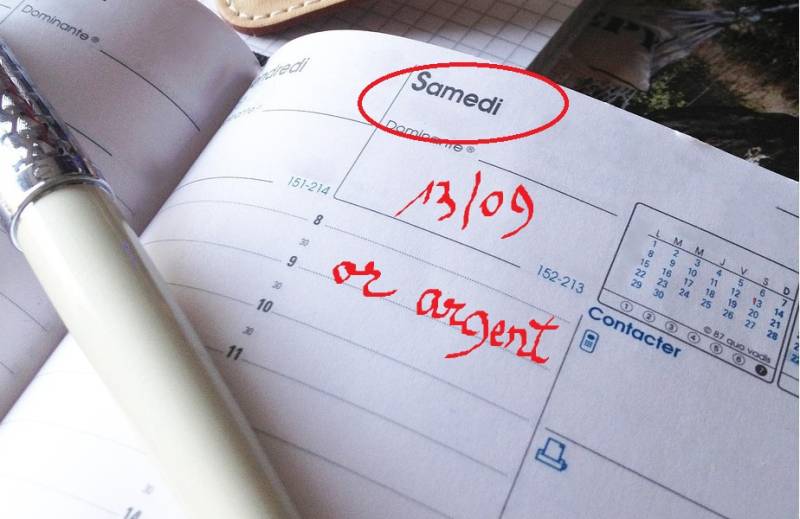 Dominante®
ndredi
151-214
Samedi
Dominante®
13/09
152-213
8
30
9
or argent
30
10
30
11
30
14
L M M J V S D
1 2 3 4 5 6 7
8 9 10 11 12 13 14
15 16 17 18 19 20 21
22 23 24 25 26 27 28
29 30
1 2 3 4 5 6 7
© 87 quo vadis
Contacter